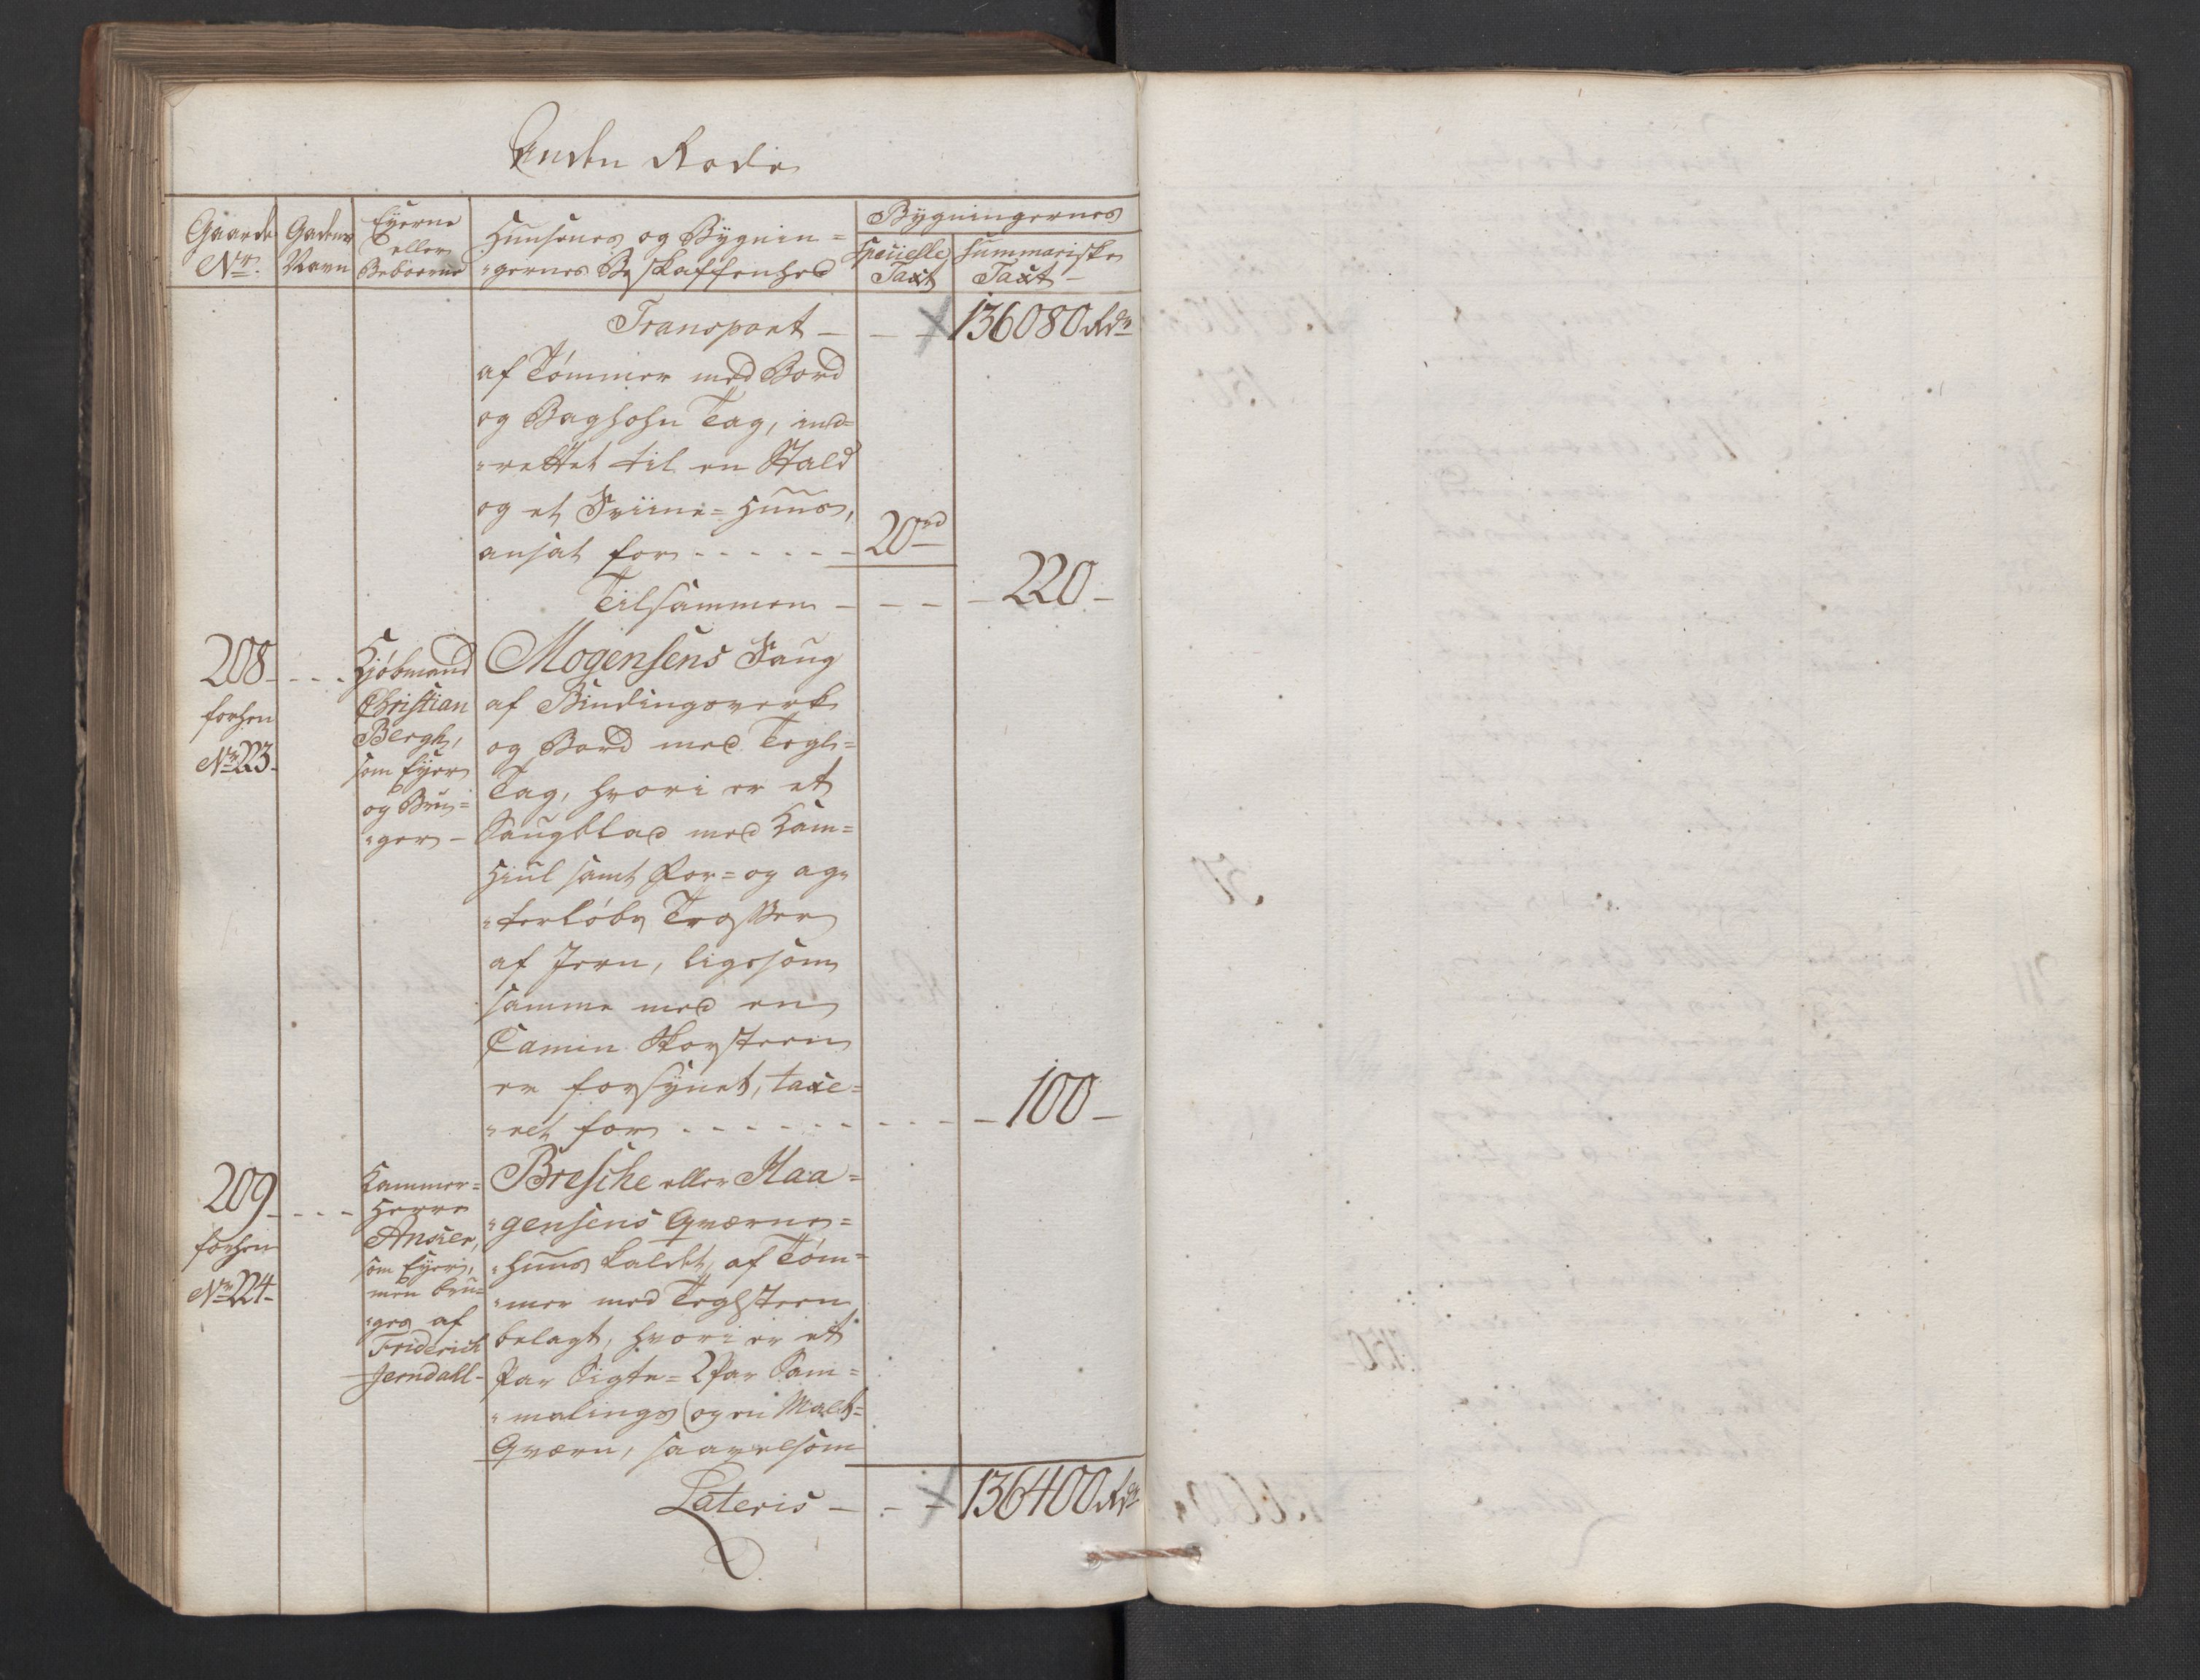 Anden Rode
Gaards No.
Gadens Navn
Eyerne eller Beboerne
Huusenes og Bygnin=
gernes Beskaffenhed
Bygningernes
Specielle Taxt
Summariske Taxt
Transport — — — 136080 Rdr
af Tømmer med Bord
og Baghohn Tag, ind=
rettet til en Stald
og et Sviine=Huus,
ansat for - - - - - - 20 rd
Tilsammen — - - - 220 —
208 - - - -
forhen
No 223.
Kjøbmand
Christian
Bergh,
som Eyer
og Bru=
ger —
Mogensens Saug
af Bindingsverk
og Bord med Tegl=
Tag, hvori er et
Saugblad med Kam=
Hiul samt For= og ag=
terløbs Trosser
af Jern, ligesom
samme med en
Camin Skorsteen
er forsynet, taxe=
ret for - - - - - - - - - 100 —
209 - - - -
forhen
No 224
Kammer=
Herre
Ancher,
som Eyer,
men bru=
ges af
Friderich
Jerndall —
Bresche eller Haa=
gensens Qværne=
huus kaldet, af Tøm=
mer med Teglsteen
belagt, hvori er et
Par Sigte= 2 Par Sam=
malings og en Malt=
Qværn, saavelsom
Lateris — - - - 136400 Rdr